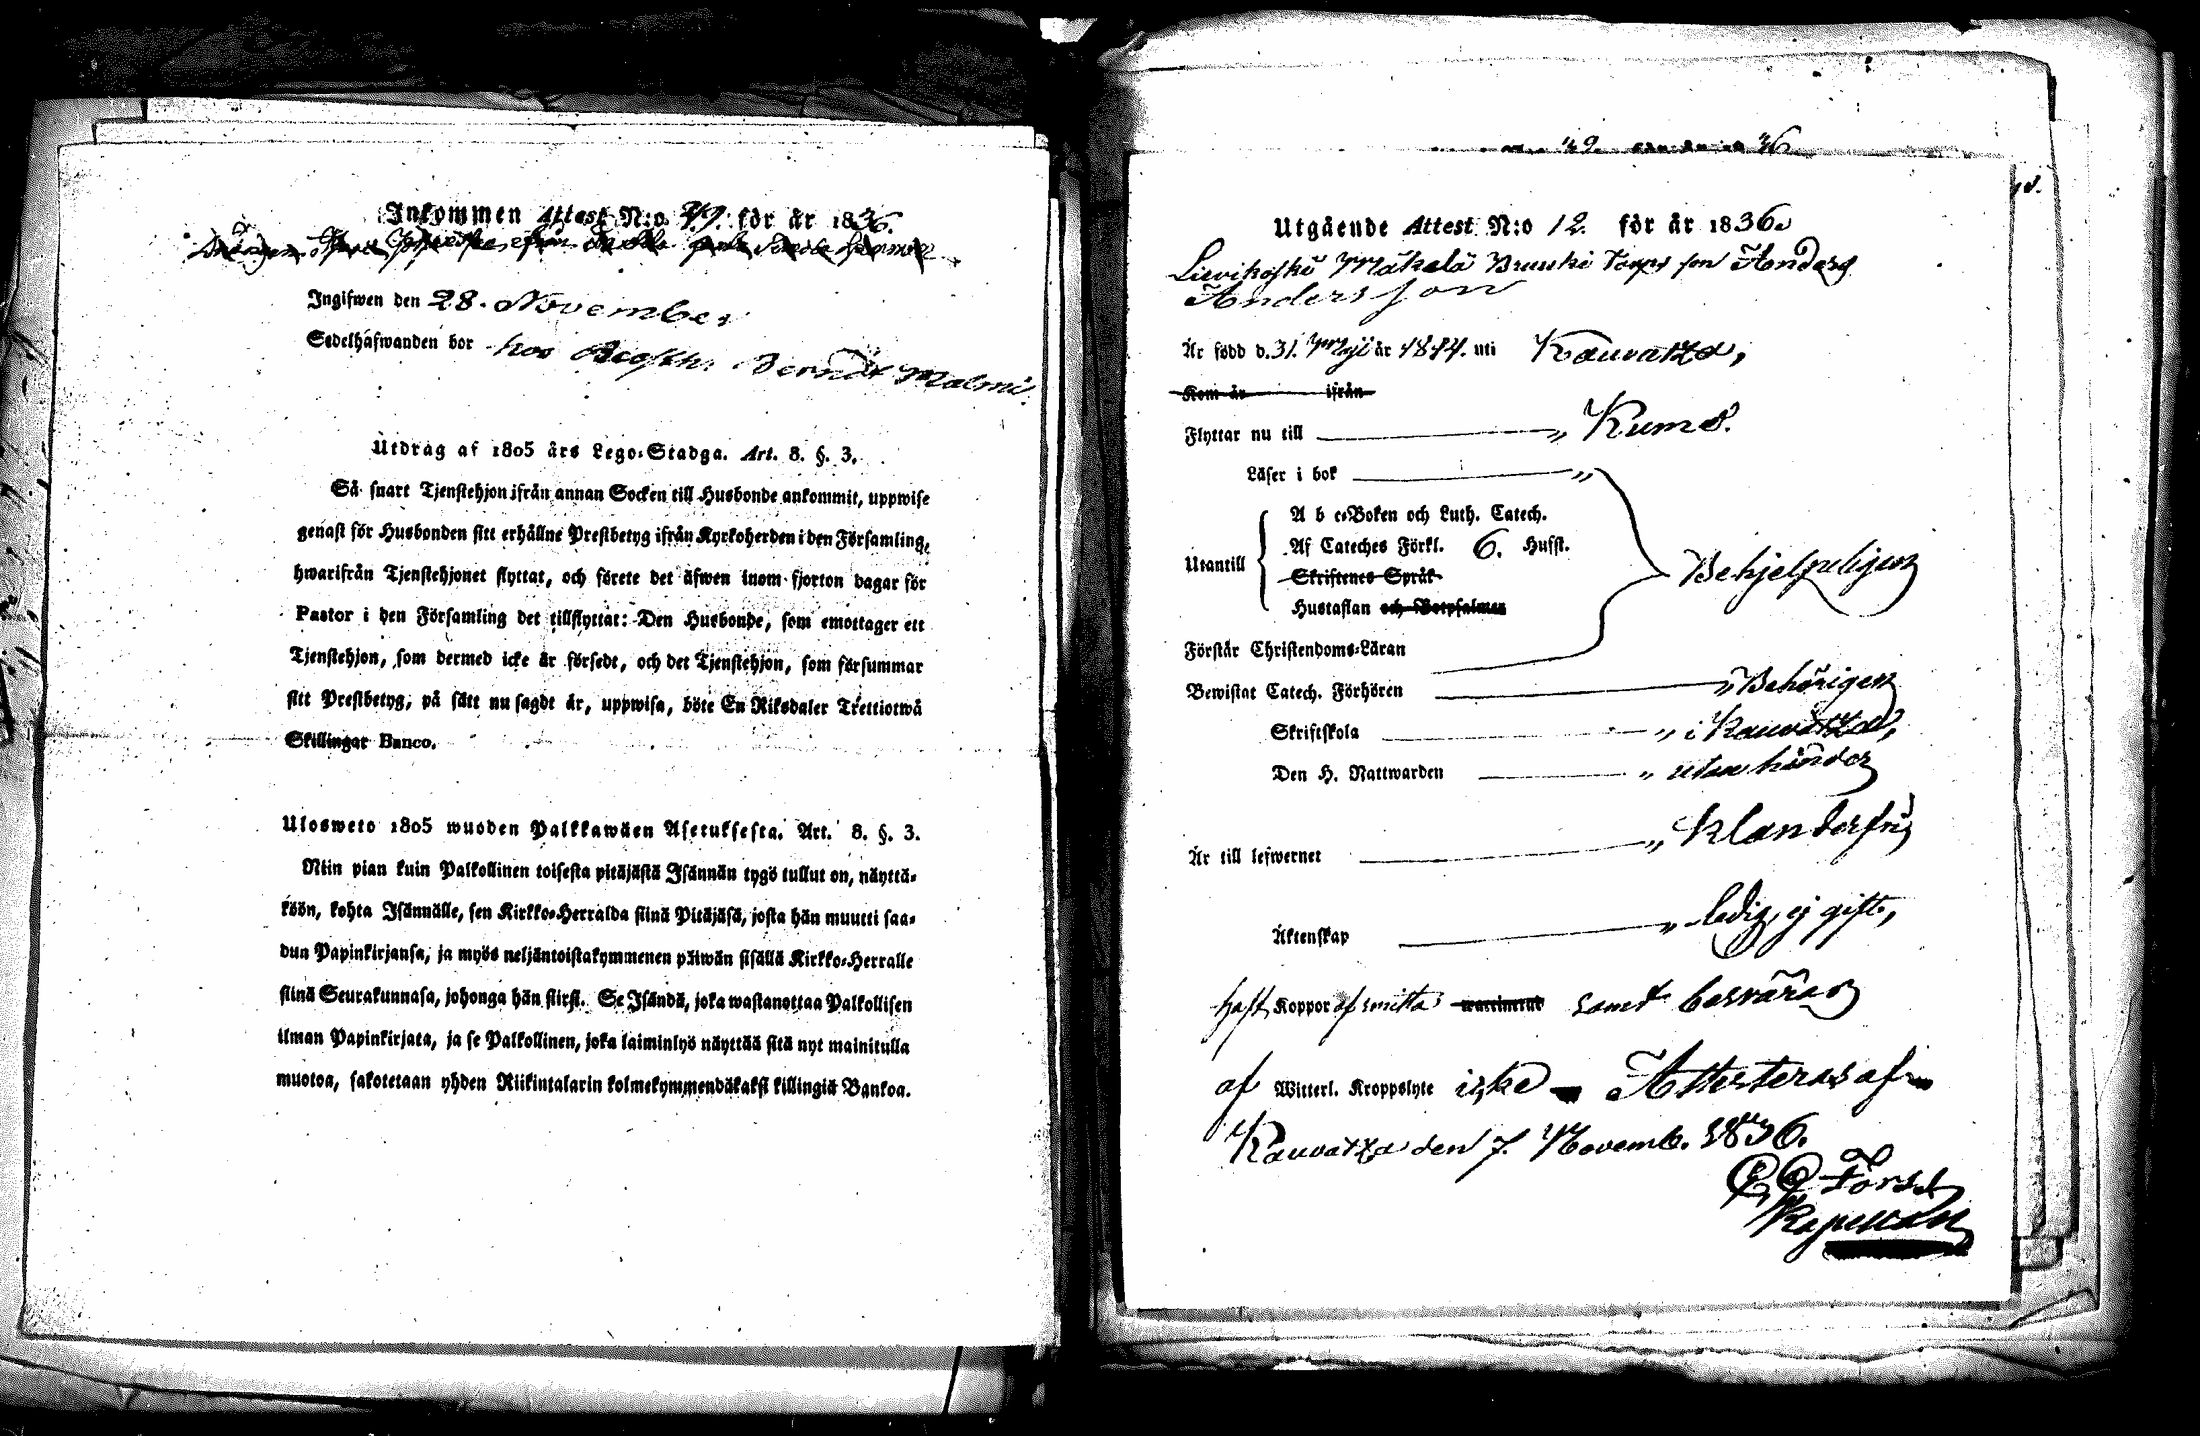 Inkommen Attest N:o 49. för år 1836.
Ingifwen den 28. November
Sedelhafwanden bor hos Berndt Malmi.
Utdrag af 1805 års Lego-Stadga. Art. 8. §. 3.
Så snart Tjenstehjon ifrån annan Socken till Husbonde ankommit, uppwise
genast för Husbonden sitt erhållne Prestbetyg ifrån Kyrkoherden i den Församling,
hwarifrån Tjenstehjonet flyttat, och förete det äfwen inom fjorton dagar för
Pastor i den Församling det tillflyttat: Den Husbonde, som emottager ett
Tjenstehjon, som dermed icke är försedt, och det Tjenstehjon, som försummar
sitt Prestbetyg, på sätt nu sagdt är, uppwisa, böte En Riksdaler Trettiotwå
Skillingar Banco.
Ulosweto 1805 wuoden Palkkawäen Asetuksesta. Art. 8. §. 3.
Niin pian kuin Palkollinen toisesta pitäjästä Isännän tygö tullut on, näyttä-
köön, kohta Isännälle, sen Kirkko-Herralda siinä Pitäjäsä, josta hän muutti saa-
dun Papinkirjansa, ja myös neljäntoistakymmenen päiwän sisällä Kirkko-Herralle
siinä Seurakunnasa, johonga hän siirsi. Se Isändä, joka wastanottaa Palkollisen
ilman Papinkirjata, ja se Palkollinen, joka laiminlyö näyttää sitä nyt mainitulla
muotoa, sakotetaan yhden Riikintalarin kolmekymmendäkaksi killingiä Bankoa.
49. 36
Utgående Attest N:o 12. för år 1836.
Lievikoski Mäkelä Bruuki Torps son Anders
Andersson
Är född d. 31. Maji år 1814. uti Kauvatza,
Kom år ifrån
Flyttar nu till " Kumo.
Läser i bok "
A b c-Boken och Luth. Catech.
Af Cateches Förkl. 6. Hufst.
Utantill
Skriftenes Språk
Hustaflan och Botpsalmer
Behjelpeligen
Förstår Christendoms-Läran
Bewistat Catech. Förhören " Behörigen
Skriftskola " i Kauvatza,
Den H. Nattwarden " utan hinder
Är till lefwernet " Klanderfri
Äktenskap " ledig, ej gift,
haft Koppor af smitta samt besväras
af Witterl. Kroppslyte icke Attesteras af
Kauvatza den 7. Novemb. 1836.
Forss
Kapellan